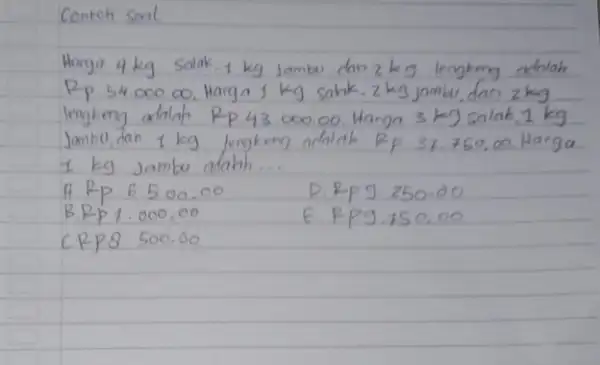 Contoh soal
Harga 4 kg salak. 1 kg jambu dan 2 kg lengkeng adalah
Rp 54.000.00. Harga 1 kg salak. 2 kg jambu, dan 2 kg
lengkeng adalah Rp 43.000.00. Harga 3 kg salak, 1 kg
jambu, dan 1 kg lengkeng adalah Rp 37.750,00. Harga
1 kg jambu adalah ...
A Rp 6 500.00 D. Rp 9 250.00
B Rp 7.000.00 E Rp 9.750.00
C Rp 8 500.00